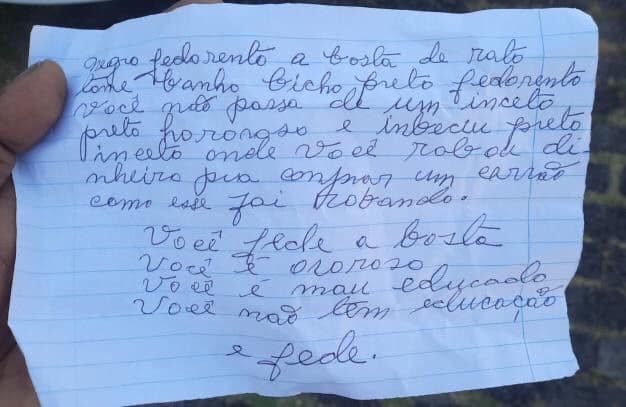 negro fedorento a bosta de rato
tome banho bicho preto fedorento
você não passa de um inceto
preto hororoso e inbeciu preto
inceto onde você robou di
nheiro pra comprar um carrão
como esse foi robando.
você fede a bosta
você é ororoso
você é mau educado
você não tem educação
e fede.